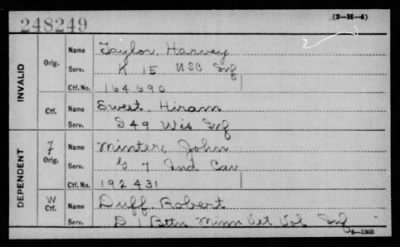 248249
(3-H-4)
INVALID
Orig.
Name Taylor Harvey
Serv. K 15 USC Inf
Ctf. No. 164690
Ctf.
Name Swest Hiram
Serv. S 49 Wis Inf
DEPENDENT
F
Orig.
Name Minter John
Serv. G 7 Ind Cav
Ctf. No. 192431
W
Ctf.
Name Duff Robert
Serv. D 1 Battn Minn Vet Vol Inf